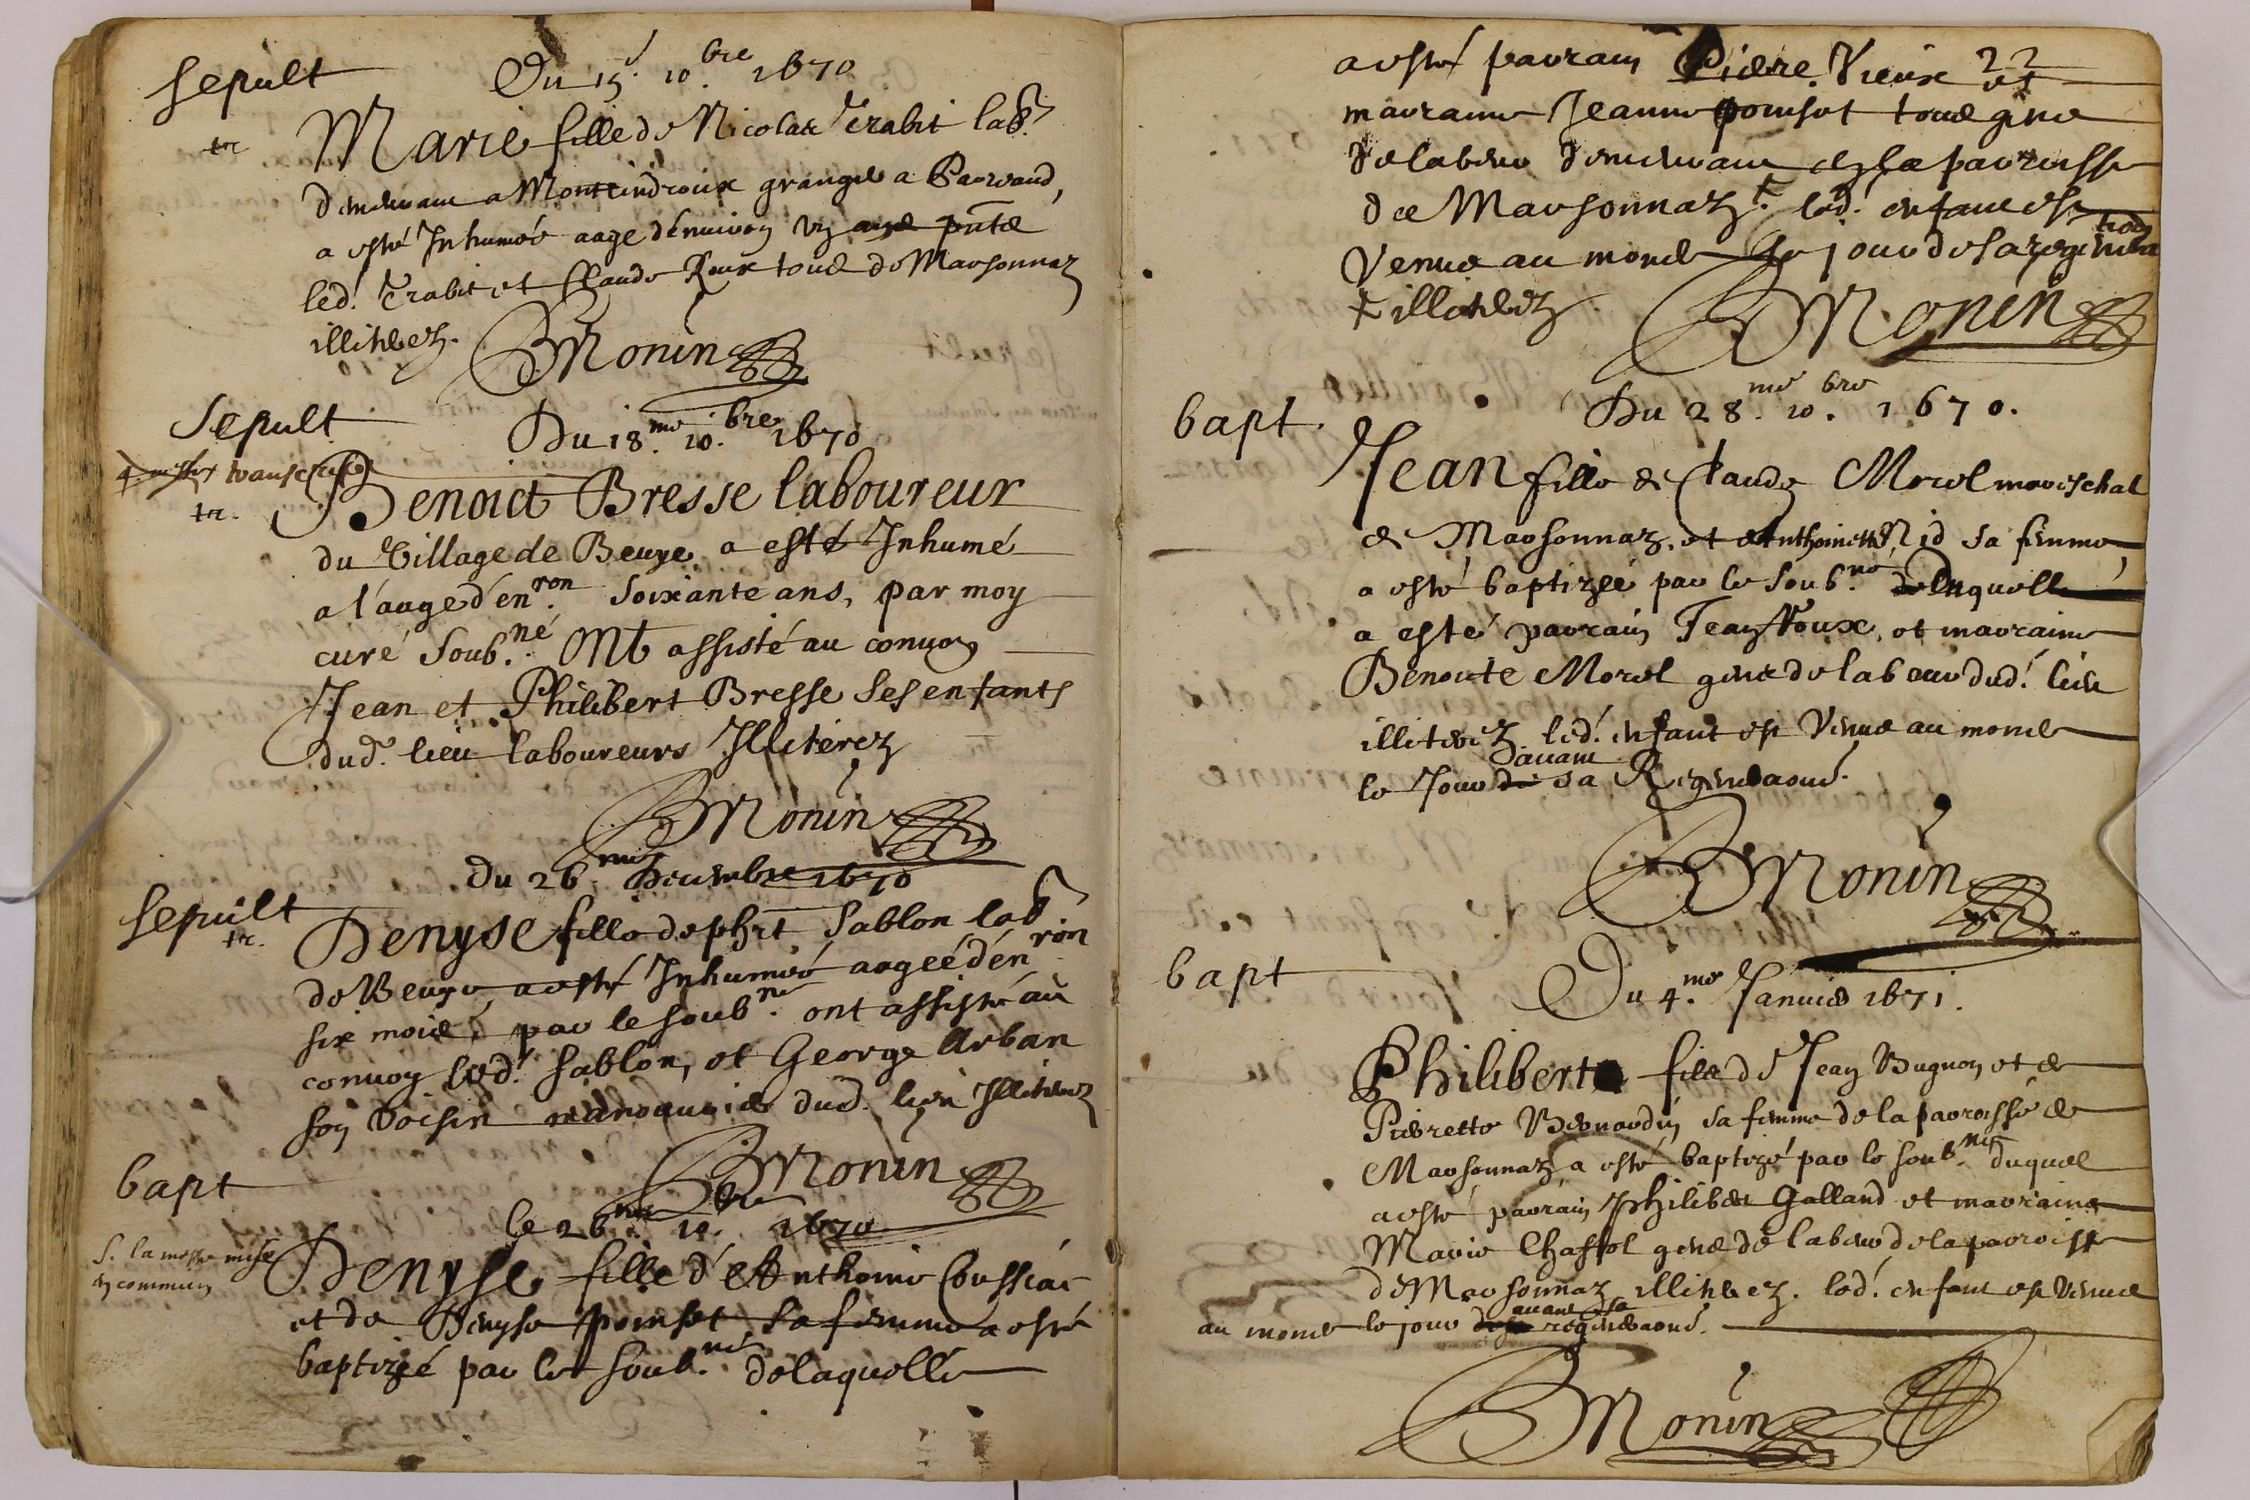 sepult
Du 15. 10.bre 1670
tr.
Marie fille de Nicolas Trabit lab.r
demeurant a Montcindroux granger a
a esté Inhumée aage d'environ
led. Trabit et Claude Roux tous de Marsonnaz
illiterez.
BMonin
Sepult
Du 18.me 10.bre 1670
transcript
tr.
Benoict Bresse laboureur
du Village de Beuye a esté Inhumé
a l'aage d'en.ron soixante ans, par moy
curé soub.né Ont assisté au convoy
Jean et Philibert Bresse ses enfants
dud. lieu laboureurs Illiterez
BMonin
du 26.me Decembre 1670
sepult
tr.
Denyse fille de phrt Sablon lab.r
de Beuye, a esté Inhumée aageé d'en.ron
six mois, par le soub.né ont assisté au
convoy led. Sablon, et George Arban
son voisin dud. lieu Illiterez
BMonin
bapt
le 26.me 10.bre 1670
s. la messe mise
en commun
Denyse fille d'Anthoine Coussiat
et de Denyse poinsot sa femme a esté
baptizeé par le soub.né de laquelle
22
a esté parrain Pierre Vieux et
marraine Jeanne poinsot tous gens
de labeur demeurant en la parroisse
de Marsonnaz ‡. led. enfant est
Venue au monde le jour de sa regenera
tion
‡ illiterez
BMonin
bapt.
Du 28.me 10.bre 1670.
Jean fille de Claude Morel mareschal
de Marsonnaz, et d'Anthoinette Nid sa femme
a esté baptizeé par le soub.né de laquelle
a esté parrain Jean Roux, et marraine
Benoite Morel gens de labeur dud. lieu
illiterez led. enfant est Venue au monde
davant
le Jour de sa Regeneraon.
BMonin
bapt
Du 4.me Janvier 1671.
Philibert fils de Jean Bugnon et de
Pierrette Bernardin sa femme de la parroisse de
Marsonnaz a esté baptizé par le soub.né duquel
a esté parrain Philibert Galland et marraine
Marie Chassol gens de labeur de la parroisse
de Marsonnaz illiterez. led. enfant est Venue
avant sa
au monde le jour de sa regeneraon.
BMonin